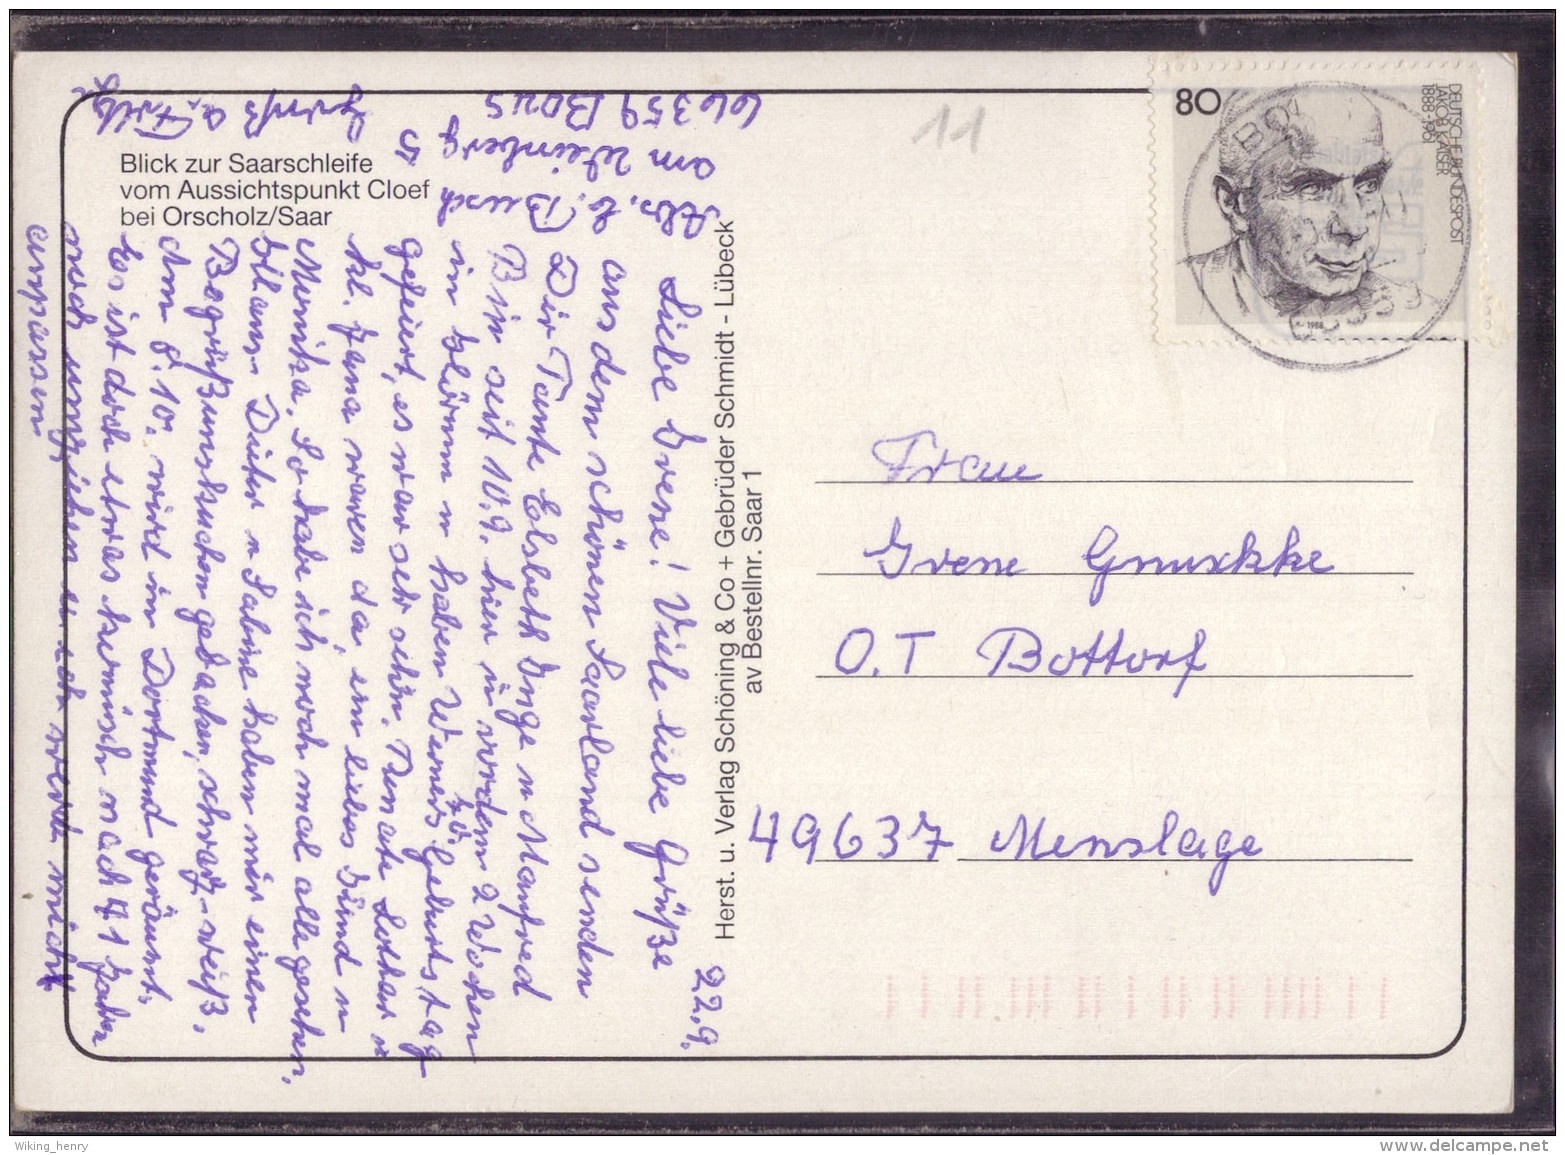 80
DEUTSCHE BUNDESPOST
JAKOB KAISER
1888-1961
1988
11
Blick zur Saarschleife
vom Aussichtspunkt Cloef
bei Orscholz/Saar
Herst. u. Verlag Schöning & Co + Gebrüder Schmidt - Lübeck
av Bestellnr. Saar 1
22.9.
Liebe Irene! Viele liebe Grüße
aus dem schönen Saarland senden
Dir Tante Elsbeth Inge u Manfred
Bin seit 10.9. hier u vor 2 Wochen
u haben Werners 70. Geburtstag
gefeiert, es war sehr schön. Renate Lothar u
kl. Jana waren da, ein liebes Kind u
Monika. So habe ich noch mal alle gesehen.
Dieter u Sabine haben mir einen
Begrüßungskuchen gebacken, schwarz-weiß.
Am 8.10. wird in Dortmund geräumt.
Es ist doch etwas komisch nach 41 Jahren
noch umziehen u sich
anpassen
Abs. E. Busch
am Weinberg 5
66359 Bous
Gruß a.
Frau
Irene Gnuschke
O.T Bottorf
49637 Menslage
Wiking_henry
delcampe.net